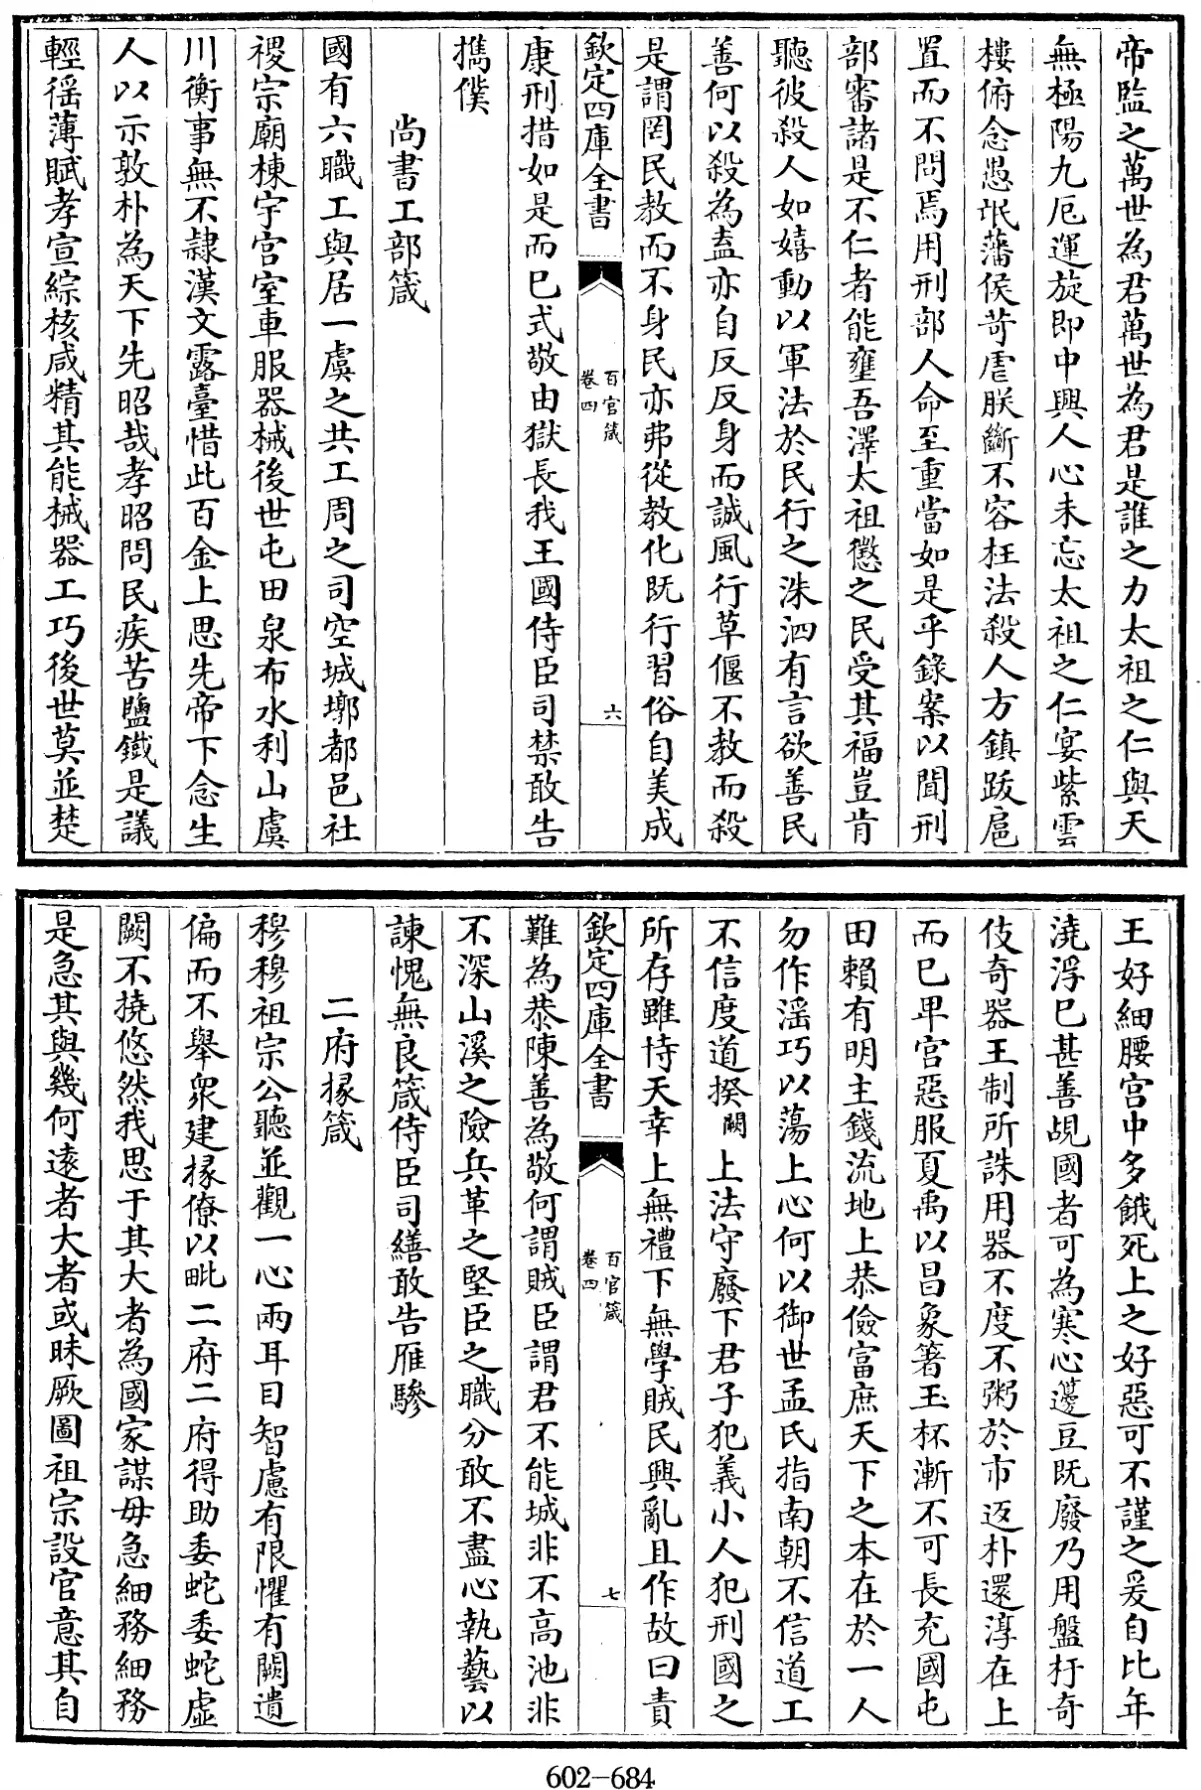 帝監之萬世為君萬世為君是誰之力太祖之仁與天
無極陽九厄運旋即中興人心未忘太祖之仁宴紫雲
樓俯念愚氓藩侯苛虐朕斷不容枉法殺人方鎮跋扈
置而不問焉用刑部人命至重當如是乎錄案以聞刑
部審諸是不仁者能壅吾澤太祖懲之民受其福豈肯
聽彼殺人如嬉動以軍法於民行之洙泗有言欲善民
善何以殺為盍亦自反反身而誠風行草偃不教而殺
是謂罔民教而不身民亦弗從教化既行習俗自美成
欽定四庫全書
百官箴
卷四
六
康刑措如是而已式敬由獄長我王國侍臣司禁敢告
攜僕
尚書工部箴
國有六職工與居一虞之共工周之司空城墎都邑社
稷宗廟棟宇宮室車服器械後世屯田泉布水利山虞
川衡事無不隸漢文露臺惜此百金上思先帝下念生
人以示敦朴為天下先昭哉孝昭問民疾苦鹽鐵是議
輕徭薄賦孝宣綜核咸精其能械器工巧後世莫並楚
王好細腰宮中多餓死上之好惡可不謹之爰自比年
澆浮已甚善覘國者可為寒心籩豆既廢乃用盤杅奇
伎奇器王制所誅用器不度不粥於市返朴還淳在上
而已卑宮惡服夏禹以昌象箸玉杯漸不可長充國屯
田賴有明主錢流地上恭儉富庶天下之本在於一人
勿作滛巧以蕩上心何以御世孟氏指南朝不信道工
不信度道揆闕上法守廢下君子犯義小人犯刑國之
所存雖恃天幸上無禮下無學賊民興亂且作故曰責
欽定四庫全書
百官箴
卷四
七
難為恭陳善為敬何謂賊臣謂君不能城非不高池非
不深山溪之險兵革之堅臣之職分敢不盡心執藝以
諫愧無良箴侍臣司繕敢告雁驂
二府掾箴
穆穆祖宗公聽並觀一心兩耳目智慮有限懼有闕遺
偏而不舉衆建掾僚以毗二府二府得助委蛇委蛇虛
闕不撓悠然我思于其大者為國家謀毋急細務細務
是急其與幾何逺者大者或昧厥圖祖宗設官意其自
602-684